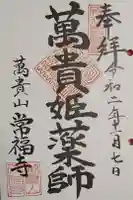 奉拝
令和二年十一月七日
萬貴姫薬師
萬貴山
常福寺